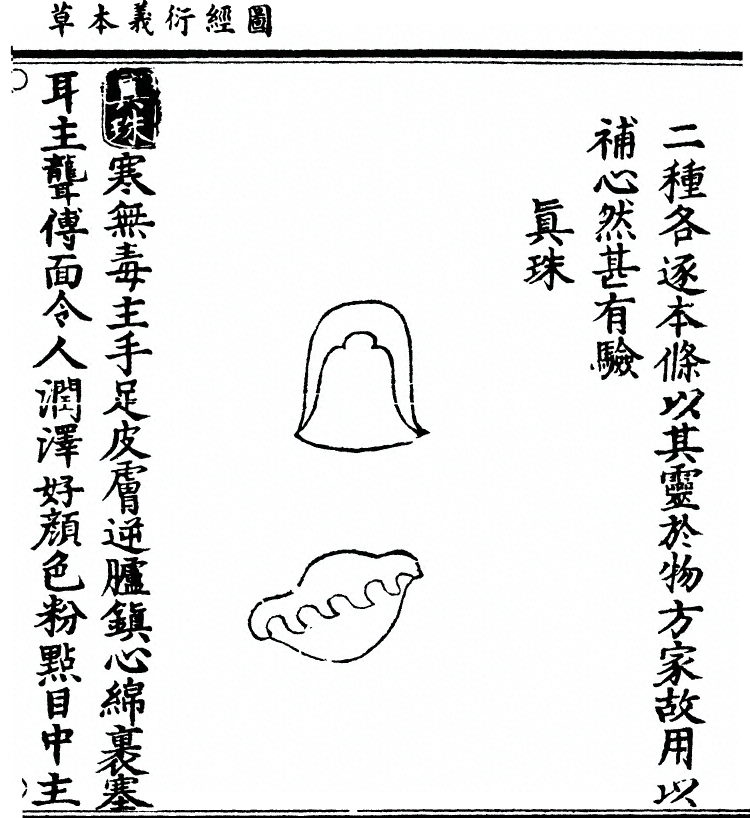 圖經衍義本草
二種各逐本條以其靈於物方家故用以
補心然甚有驗
眞珠
眞珠寒無毒主手足皮膚逆臚鎮心綿裹塞
耳主聾傅面令人潤澤好顔色粉點目中主